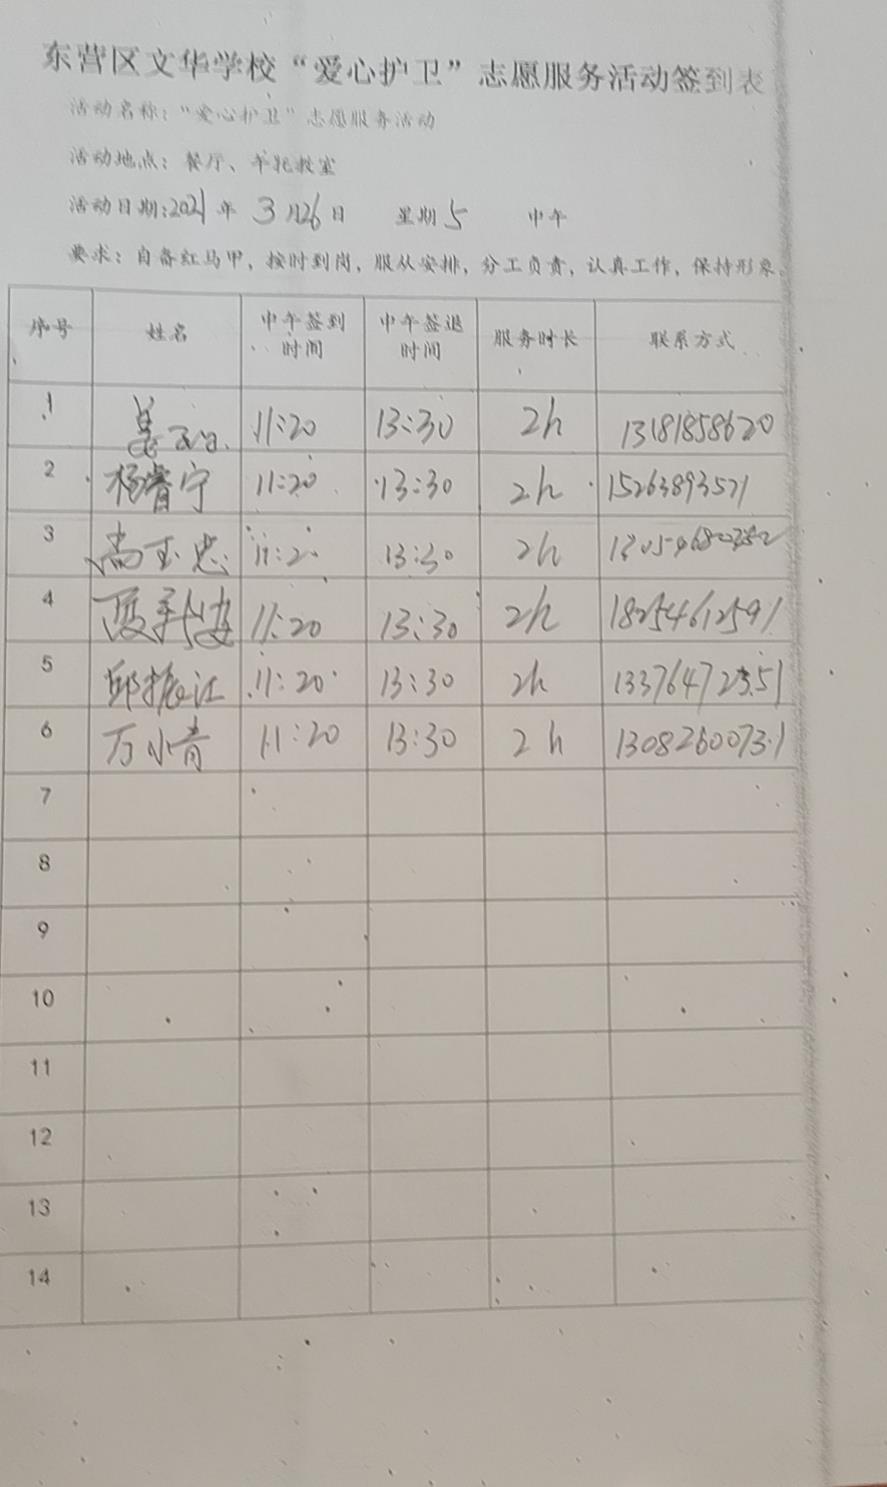 东营区文华学校“爱心护卫”志愿服务活动签到表
活动名称：“爱心护卫”志愿服务活动
活动地点：餐厅、午托教室
活动日期:2021年 3月26日 星期5 中午
要求：自备红马甲，按时到岗，服从安排，分工负责，认真工作，保持形象。
序号 姓名 中午签到时间 中午签退时间 服务时长 联系方式
1 11:20 13:30 2h 13181858620
2 杨睿宁 11:20 13:30 2h 15263893571
3 11:20 13:30 2h
4 11:20 13:30 2h 18254612591
5 邱振江 11:20 13:30 2h 13376472351
6 万小青 11:20 13:30 2h 13082600731
7
8
9
10
11
12
13
14